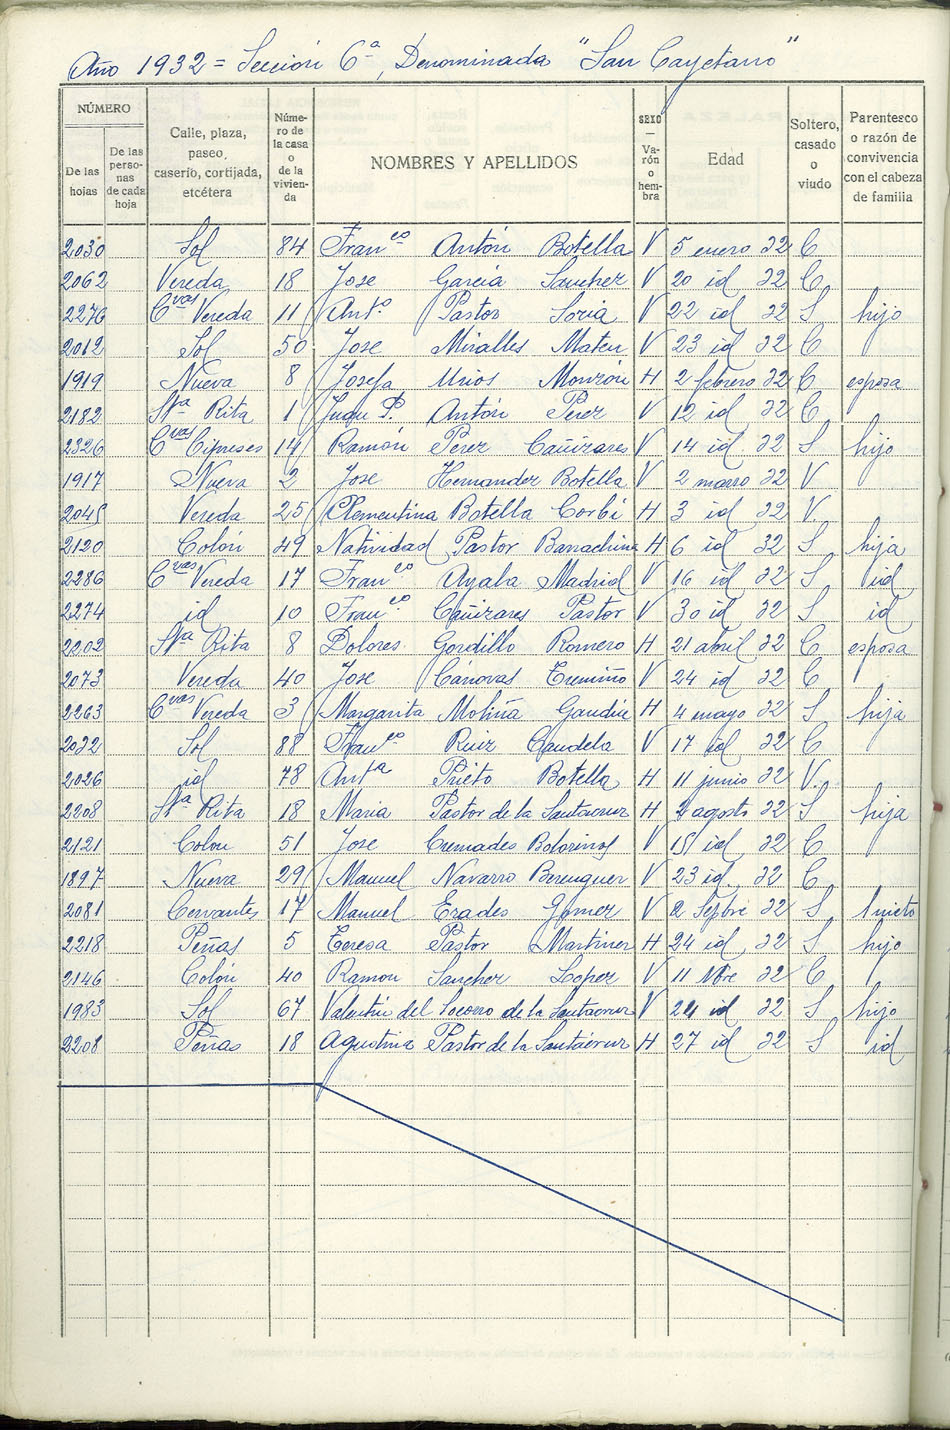 Año 1932 = Sección 6ª, Denominada "San Cayetano"
NÚMERO
De las hojas
De las personas de cada hoja
Calle, plaza, paseo, caserío, cortijada, etcétera
Número de la casa o de la vivienda
NOMBRES Y APELLIDOS
SEXO — Varón o hembra
Edad
Soltero, casado o viudo
Parentesco o razón de convivencia con el cabeza de familia
2030 Sol 84 Franco Antón Botella V 5 enero 32 C
2062 Vereda 18 Jose García Sanchez V 20 id 32 C
2276 Cvas Vereda 11 Anto Pastor Soria V 22 id 32 S hijo
2012 Sol 50 Jose Miralles Mateu V 23 id 32 C
1919 Nueva 8 Josefa Urios Monzón H 2 febrero 32 C esposa
2182 Sta Rita 1 Juan P. Antón Perez V 12 id 32 C
2326 Cvas Cipreses 14 Ramón Perez Cañizares V 14 id. 32 S hijo
1917 Nueva 2 Jose Hernandez Botella V 2 marzo 32 V
2045 Vereda 25 Clementina Botella Corbí H 3 id 32 V
2120 Colón 49 Natividad Pastor Barrachina H 6 id 32 S hija
2286 Cvas Vereda 17 Franco Ayala Madrid V 16 id 32 S id
2274 id 10 Franco Cañizares Pastor V 30 id 32 S id
2202 Sta Rita 8 Dolores Gordillo Romero H 21 abril 32 C esposa
2073 Vereda 40 Jose Cánovas Tremiño V 24 id 32 C
2263 Cvas Vereda 3 Margarita Molina Gandía H 4 mayo 32 S hija
2032 Sol 88 Franco Ruiz Candela V 17 id 32 C
2026 id 78 Anta Prieto Botella H 11 junio 32 V.
2208 Sta Rita 18 Maria Pastor de la Santacruz H agosto 32 S hija
2121 Colon 51 Jose Cremades Bolorinos V 15 id 32 C
1897 Nueva 29 Manuel Navarro Berenguer V 23 id 32 C
2081 Cervantes 17 Manuel Erades Gomez V 2 Septbre 32 S nieto
2218 Peñas 5 Teresa Pastor Martinez H 24 id 32 S hijo
2146 Colón 40 Ramon Sanchez Lopez V 11 Nbre 32 C
1983 Sol 67 Valentín del Socorro de la Santacruz V 24 id 32 S hijo
2208 Peñas 18 Agustina Pastor de la Santacruz H 27 id 32 S id